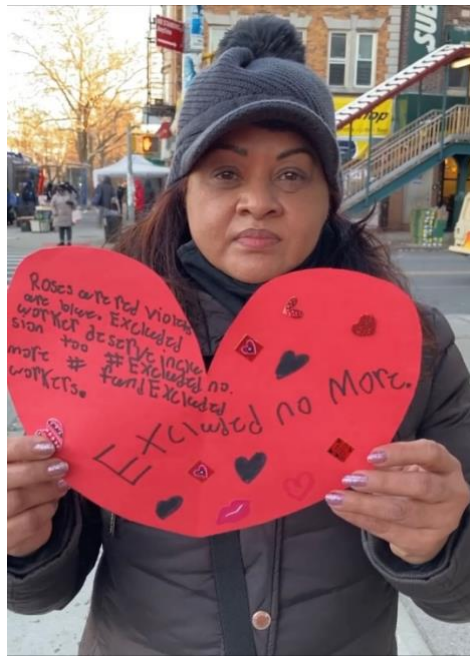 Roses are red violets
are blue. Excluded
worker deserve inclu
sion too #Excluded no.
more # fundExcluded
workers.
Excluded no More.
SUB
top